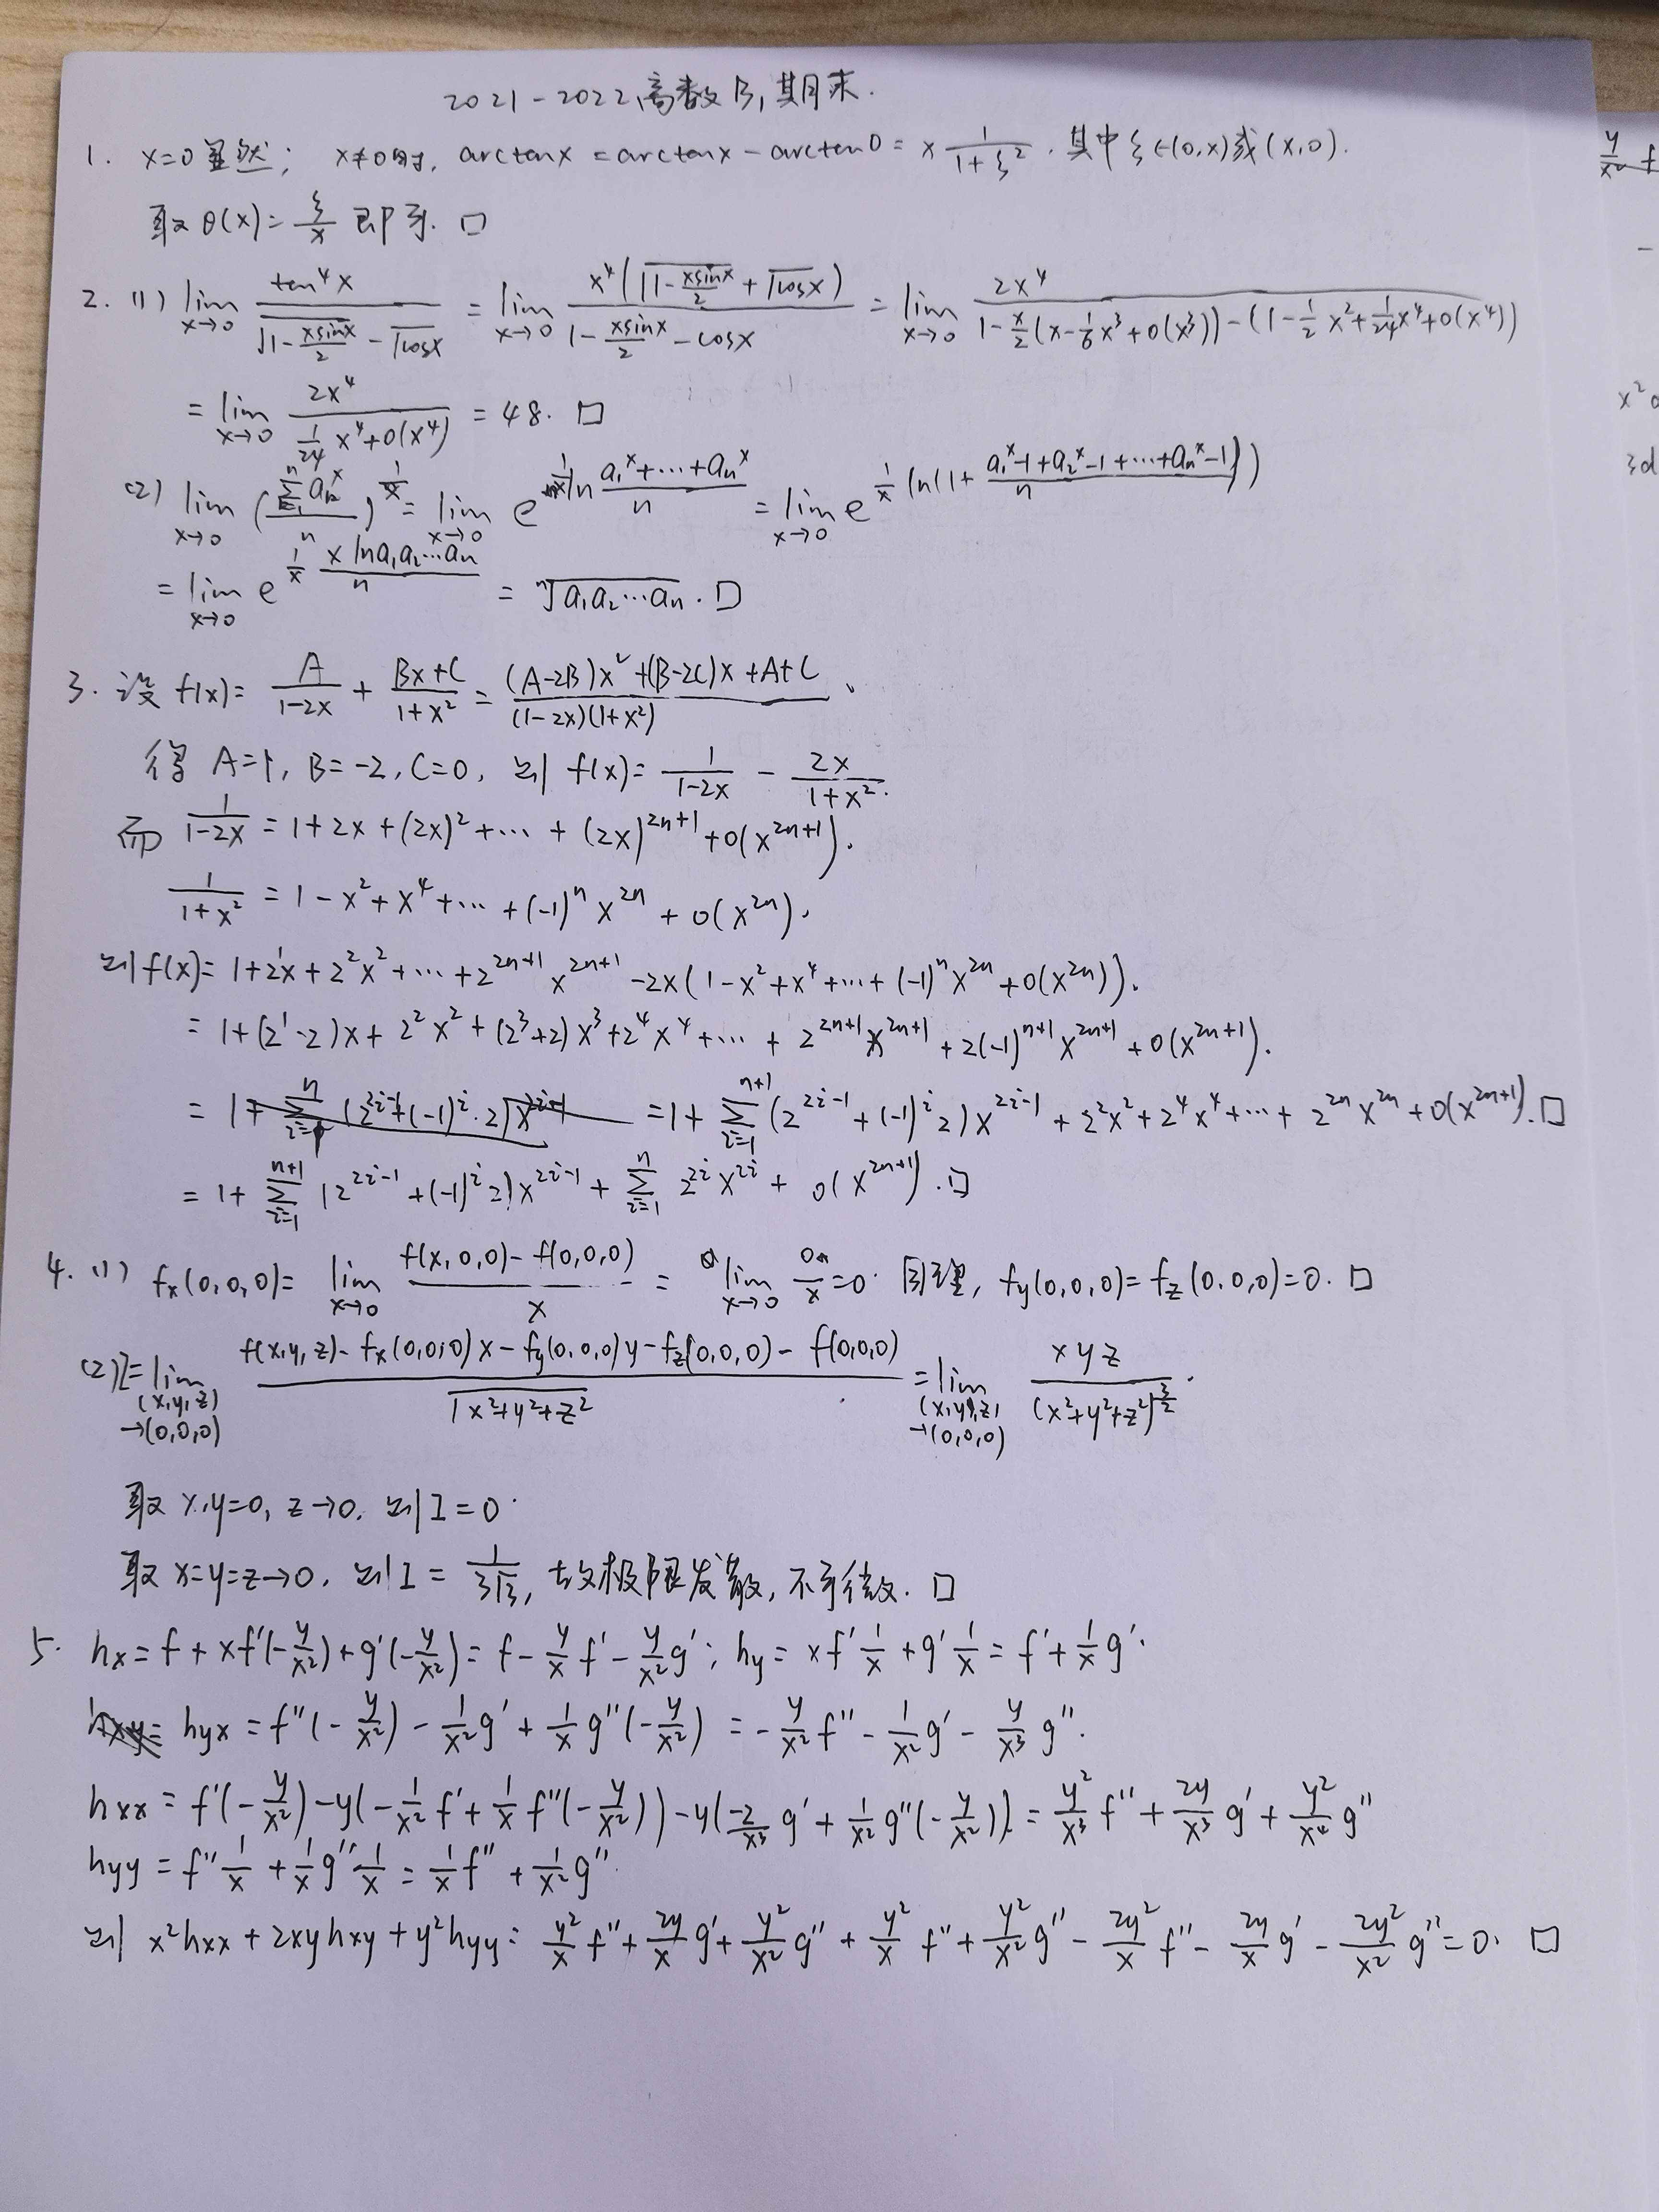 2021-2022,高数B,期末.
1. x=0显然; x≠0时, arctanx=arctanx-arctan0=x\frac{1}{1+ξ^2}. 其中ξ∈(0,x)或(x,0).
取θ(x)=\frac{ξ}{x}即可. □
2. (1) \lim_{x→0} \frac{tan^4x}{\sqrt{1-\frac{xsinx}{2}}-\sqrt{cosx}} = \lim_{x→0} \frac{x^4(\sqrt{1-\frac{xsinx}{2}}+\sqrt{cosx})}{1-\frac{xsinx}{2}-cosx} = \lim_{x→0} \frac{2x^4}{1-\frac{x}{2}(x-\frac{1}{6}x^3+o(x^3))-(1-\frac{1}{2}x^2+\frac{1}{24}x^4+o(x^4))}
= \lim_{x→0} \frac{2x^4}{\frac{1}{24}x^4+o(x^4)} = 48. □
(2) \lim_{x→0} (\frac{\sum_{k=1}^{n}a_k^x}{n})^{\frac{1}{x}} = \lim_{x→0} e^{\frac{1}{x}ln\frac{a_1^x+⋯+a_n^x}{n}} = \lim_{x→0} e^{\frac{1}{x}ln(1+\frac{a_1^x-1+a_2^x-1+⋯+a_n^x-1}{n})}
= \lim_{x→0} e^{\frac{1}{x}\frac{x lna_1a_2⋯a_n}{n}} = \sqrt[n]{a_1a_2⋯a_n}. □
3. 设f(x)=\frac{A}{1-2x}+\frac{Bx+C}{1+x^2}=\frac{(A-2B)x^2+(B-2C)x+A+C}{(1-2x)(1+x^2)}.
得A=1, B=-2, C=0, 则f(x)=\frac{1}{1-2x}-\frac{2x}{1+x^2}.
而\frac{1}{1-2x}=1+2x+(2x)^2+⋯+(2x)^{2n+1}+o(x^{2n+1}).
\frac{1}{1+x^2}=1-x^2+x^4+⋯+(-1)^nx^{2n}+o(x^{2n}).
则f(x)=1+2^1x+2^2x^2+⋯+2^{2n+1}x^{2n+1}-2x(1-x^2+x^4+⋯+(-1)^nx^{2n}+o(x^{2n})).
=1+(2^1-2)x+2^2x^2+(2^3+2)x^3+2^4x^4+⋯+2^{2n+1}x^{2n+1}+2(-1)^{n+1}x^{2n+1}+o(x^{2n+1}).
=1+\sum_{i=1}^{n+1}(2^{2i-1}+(-1)^i2)x^{2i-1}+2^2x^2+2^4x^4+⋯+2^{2n}x^{2n}+o(x^{2n+1}).□
=1+\sum_{i=1}^{n+1}(2^{2i-1}+(-1)^i2)x^{2i-1}+\sum_{i=1}^{n}2^{2i}x^{2i}+o(x^{2n+1}).□
4. (1) f_x(0,0,0)=\lim_{x→0}\frac{f(x,0,0)-f(0,0,0)}{x}=\lim_{x→0}\frac{0}{x}=0. 同理, f_y(0,0,0)=f_z(0,0,0)=0. □
(2) I=\lim_{(x,y,z)→(0,0,0)}\frac{f(x,y,z)-f_x(0,0,0)x-f_y(0,0,0)y-f_z(0,0,0)-f(0,0,0)}{\sqrt{x^2+y^2+z^2}}=\lim_{(x,y,z)→(0,0,0)}\frac{xyz}{(x^2+y^2+z^2)^{\frac{3}{2}}}.
取x,y=0, z→0. 则I=0.
取x=y=z→0. 则I=\frac{1}{3\sqrt{3}}, 故极限发散, 不可微. □
5. h_x=f+xf'(-\frac{y}{x^2})+g'(-\frac{y}{x^2})=f-\frac{y}{x}f'-\frac{y}{x^2}g'; h_y=xf'\frac{1}{x}+g'\frac{1}{x}=f'+\frac{1}{x}g'.
h_{yx}=f''(-\frac{y}{x^2})-\frac{1}{x^2}g'+\frac{1}{x}g''(-\frac{y}{x^2})=-\frac{y}{x^2}f''-\frac{1}{x^2}g'-\frac{y}{x^3}g''.
h_{xx}=f'(-\frac{y}{x^2})-y(-\frac{1}{x^2}f'+\frac{1}{x}f''(-\frac{y}{x^2}))-y(\frac{-2}{x^3}g'+\frac{1}{x^2}g''(-\frac{y}{x^2}))=\frac{y^2}{x^3}f''+\frac{2y}{x^3}g'+\frac{y^2}{x^4}g''
h_{yy}=f''\frac{1}{x}+\frac{1}{x}g''\frac{1}{x}=\frac{1}{x}f''+\frac{1}{x^2}g''.
则x^2h_{xx}+2xyh_{xy}+y^2h_{yy}=\frac{y^2}{x}f''+\frac{2y}{x}g'+\frac{y^2}{x^2}g''+\frac{y^2}{x}f''+\frac{y^2}{x^2}g''-\frac{2y^2}{x}f''-\frac{2y}{x}g'-\frac{2y^2}{x^2}g''=0. □